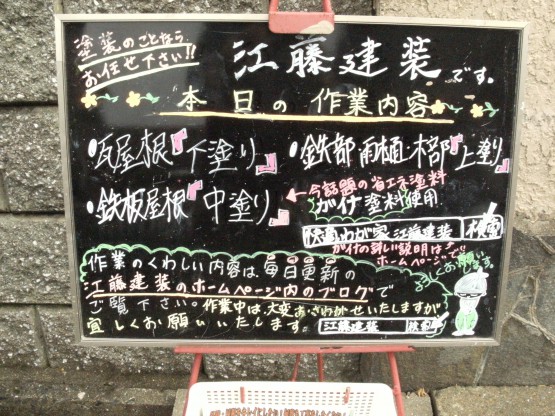 塗装のことなら
お任せ下さい!!
江藤建装です。
本日の作業内容
・瓦屋根『下塗り』
・鉄部 雨樋 木部『上塗り』
・鉄板屋根『中塗り』
←今話題の省エネ塗料
ガイナ塗料使用
快適わが家 江藤建装 検索
ガイナの詳しい説明は
ホームページで!!
作業のくわしい内容は毎日更新の
江藤建装のホームページ内のブログで
ご覧下さい。作業中は大変おさわがせいたしますが
宜しくお願いいたします。
江藤建装 検索
よろしくお願い
します。